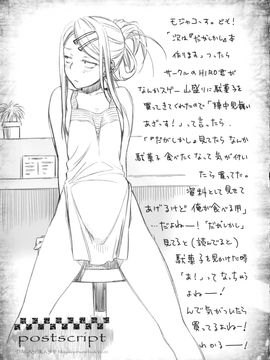 モジャコです。ども!
「次は『だがしかし』本
作ります」つったら
サークルのHIRO君が
なんかスゲー山盛りに駄菓子を
買ってきてくれたので「陣中見舞い
あざーす!」って言ったら、
「『だがしかし』見てたらなんか
駄菓子食べたくなって気が付い
たら買ってた。
資料として見せて
あげるけど俺が食べる用」
…だよねー!「だがしかし」
見てると(読んでると)
駄菓子を見かけた時
「あ!」ってなっちゃう
よねー!
んで気がついたら
買ってるよねー!
わかるー!
postscript